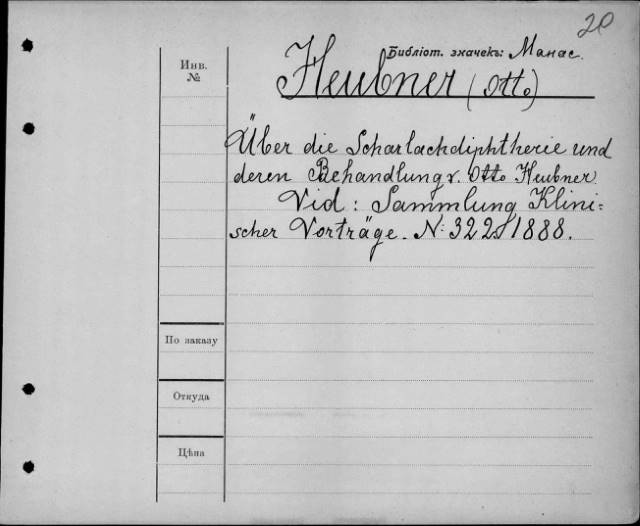 20
Инв.
№
Библіот. значекъ: Манас.
Heubner (Otto)
Über die Scharlachdiphtherie und
deren Behandlung v. Otto Heubner
Vid: Sammlung Klini=
scher Vorträge. N: 322 1888.
По заказу
Откуда
Цѣна